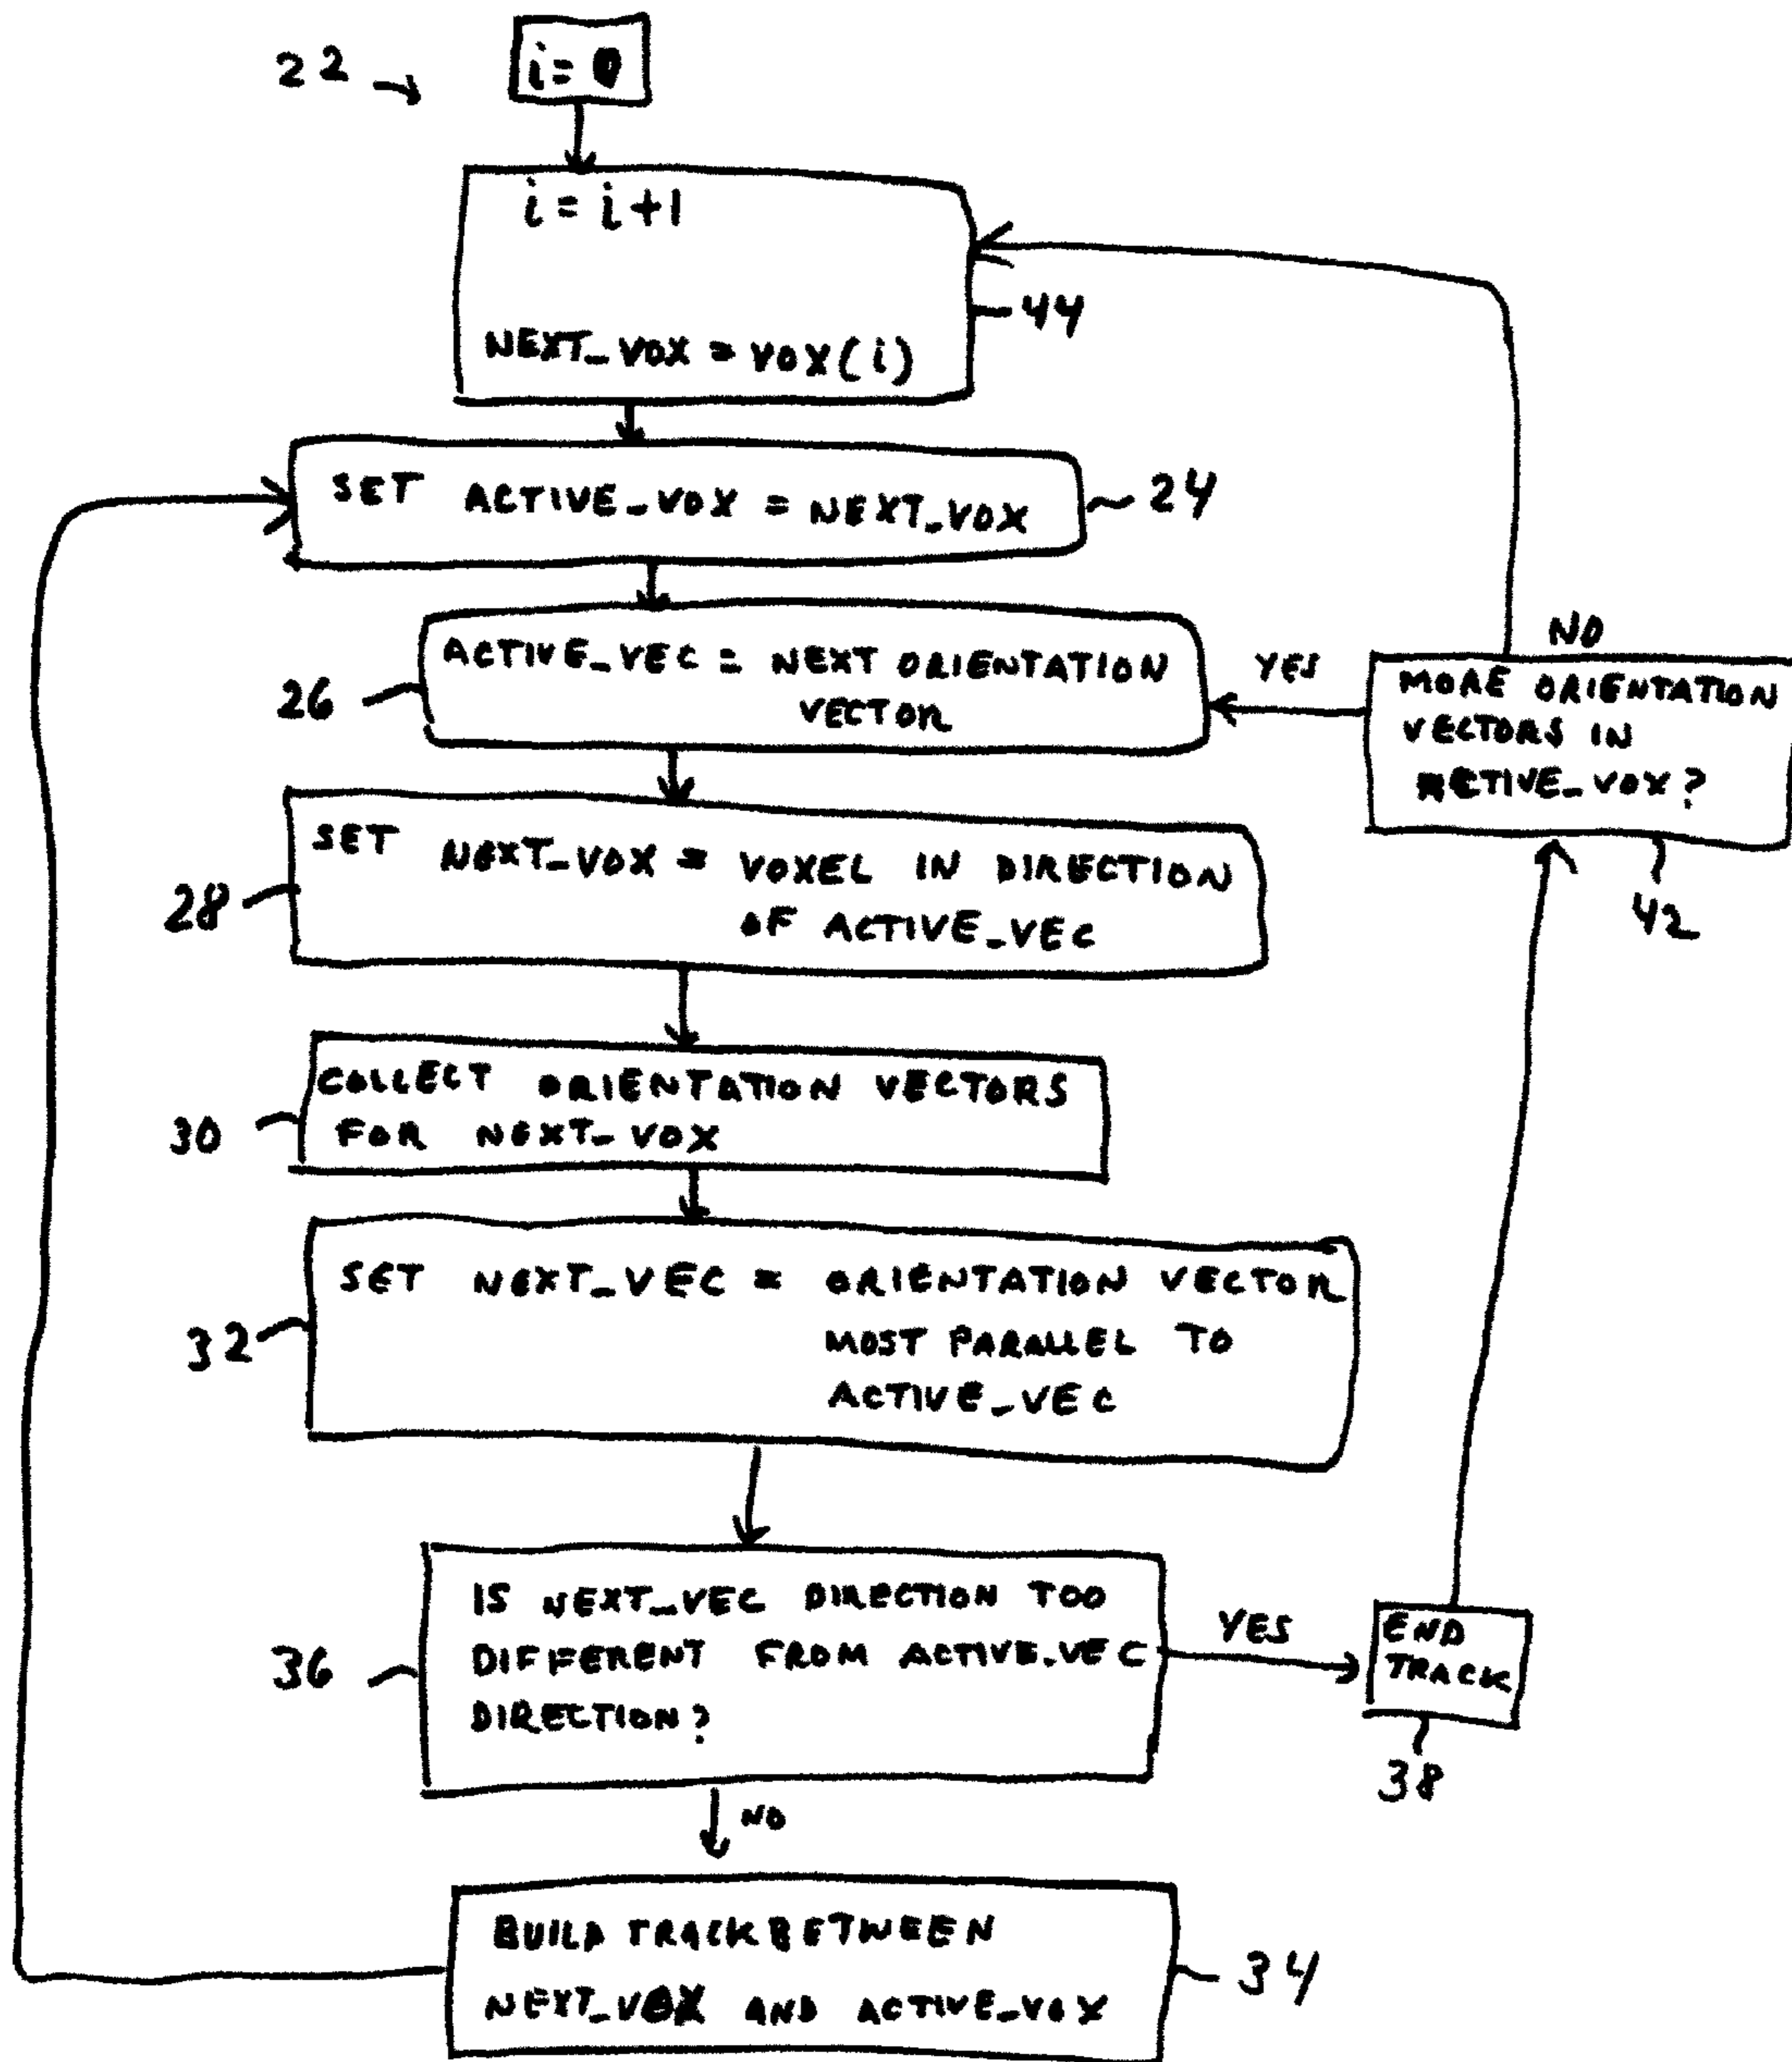 22
i = 0
i = i + 1
NEXT_VOX = VOX(i)
44
SET ACTIVE_VOX = NEXT_VOX
24
ACTIVE_VEC = NEXT ORIENTATION
VECTOR
26
YES
NO
MORE ORIENTATION
VECTORS IN
ACTIVE_VOX?
42
SET NEXT_VOX = VOXEL IN DIRECTION
OF ACTIVE_VEC
28
COLLECT ORIENTATION VECTORS
FOR NEXT_VOX
30
SET NEXT_VEC = ORIENTATION VECTOR
MOST PARALLEL TO
ACTIVE_VEC
32
IS NEXT_VEC DIRECTION TOO
DIFFERENT FROM ACTIVE_VEC
DIRECTION?
36
YES
END
TRACK
38
NO
BUILD TRACK BETWEEN
NEXT_VOX AND ACTIVE_VOX
34